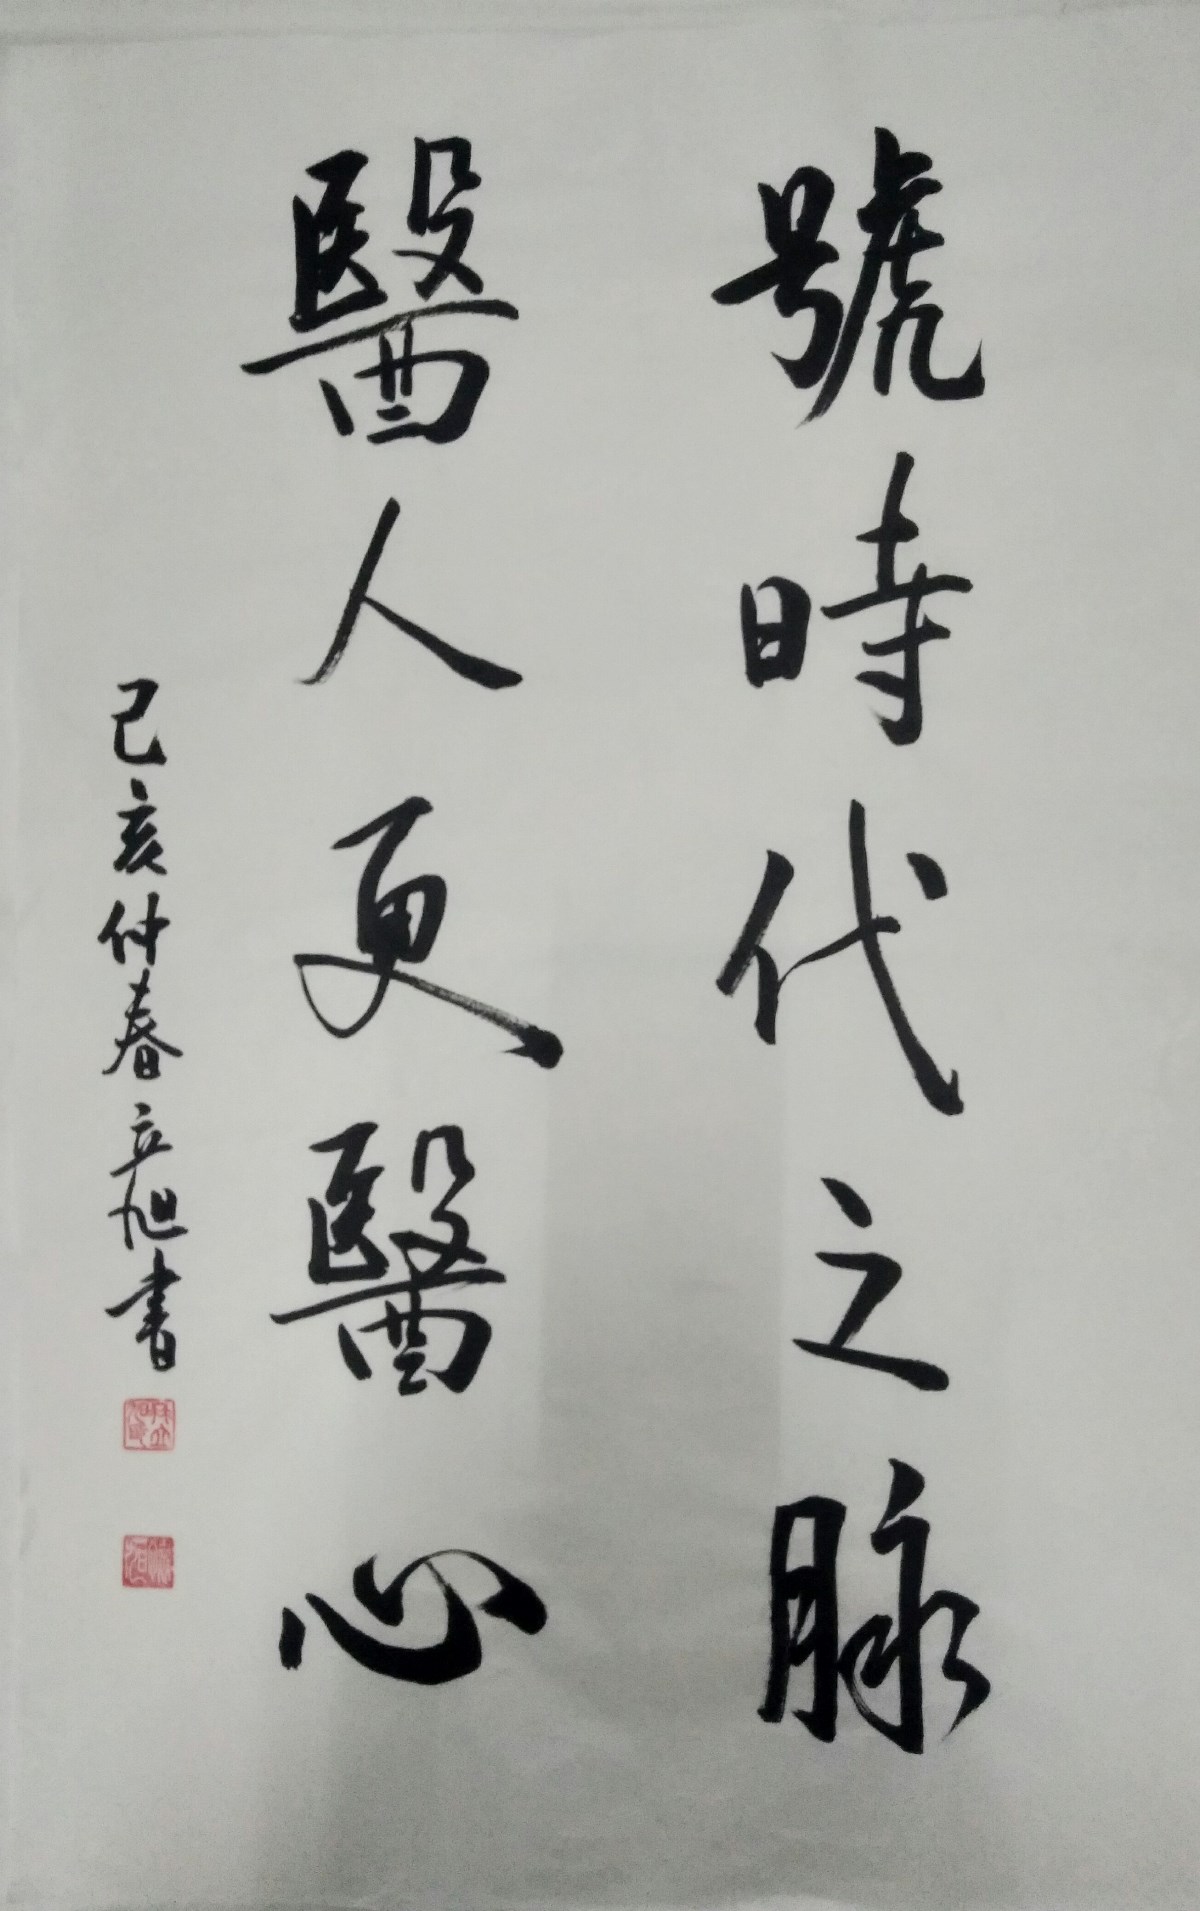 號時代之脉
醫人更醫心
己亥仲春立旭書